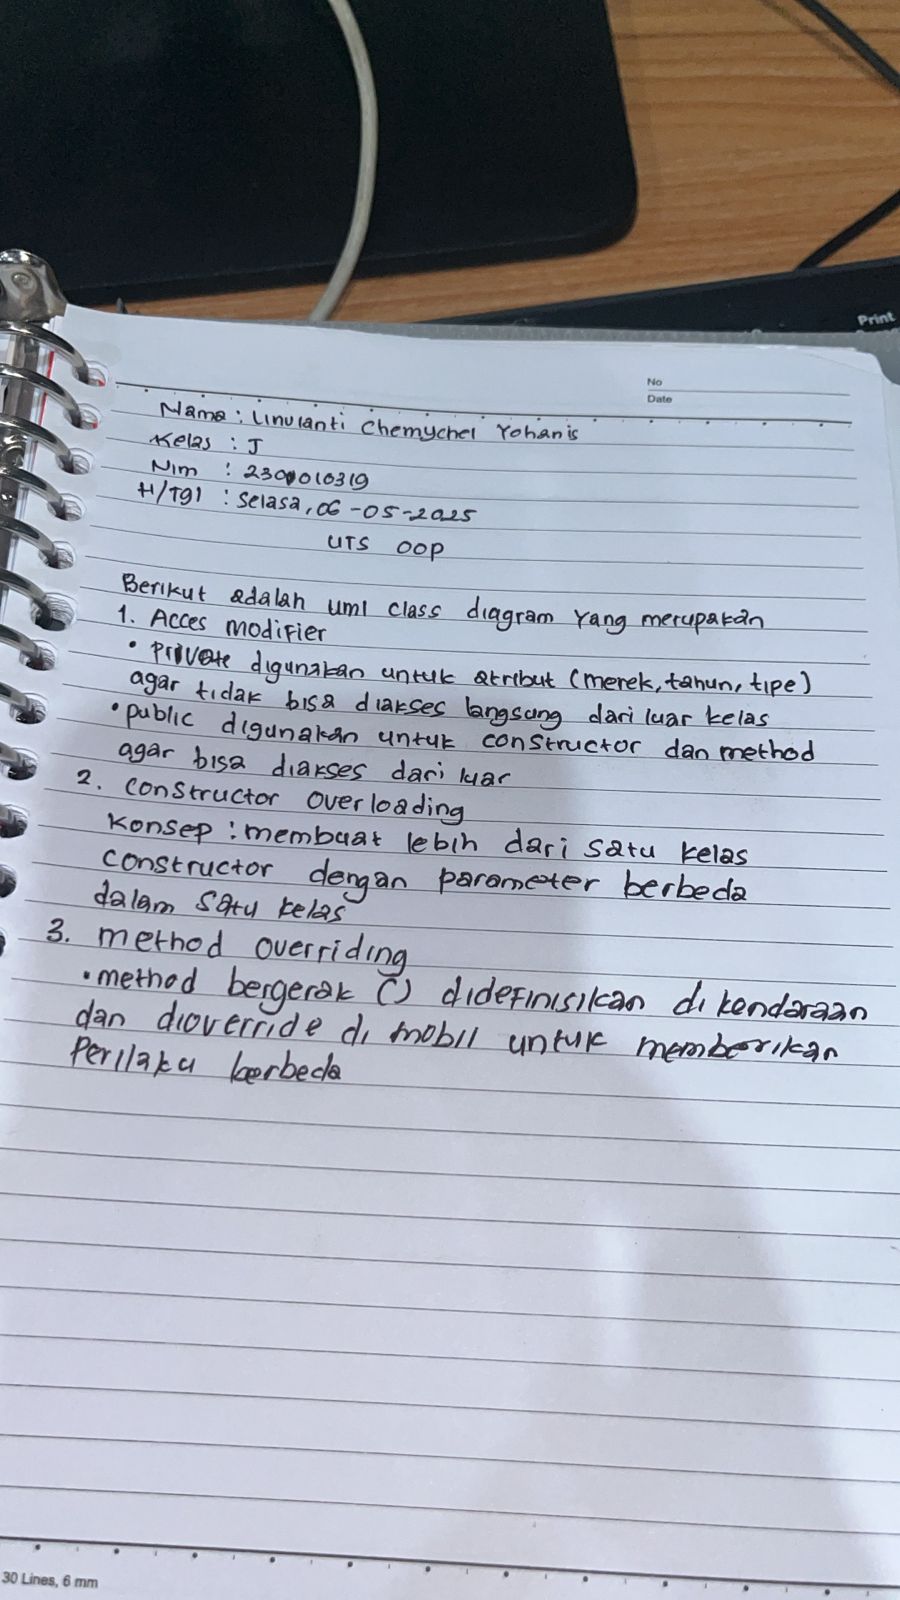 Print
No
Date
Nama : Linulanti Chemychel Yohanis
Kelas : J
Nim : 2300010319
H/Tgl : Selasa, 06-05-2025
UTS OOP
Berikut adalah uml class diagram yang merupakan
1. Acces modifier
• private digunakan untuk atribut (merek, tahun, tipe)
agar tidak bisa diakses langsung dari luar kelas
• public digunakan untuk constructor dan method
agar bisa diakses dari luar
2. constructor overloading
Konsep : membuat lebih dari satu kelas
constructor dengan parameter berbeda
dalam satu kelas
3. method overriding
• method bergerak () didefinisikan di kendaraan
dan dioverride di mobil untuk memberikan
Perilaku berbeda
30 Lines, 6 mm